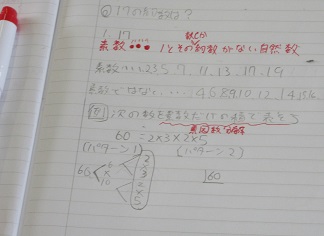 ⑥ 17の約数は?
1, 17
素数 ••• 1とその他に約数がない自然数
素数 ‥‥ 2,3,5, 7, 11, 13, 17, 19
素数ではない ‥‥ 4,6,8,9,10,12,14,15,16
例 次の数を素数だけの積で表そう
素因数分解
60 = 2×3×2×5
(パターン1) (パターン2)
60 6 × 10 2 × 3 2 × 5
60